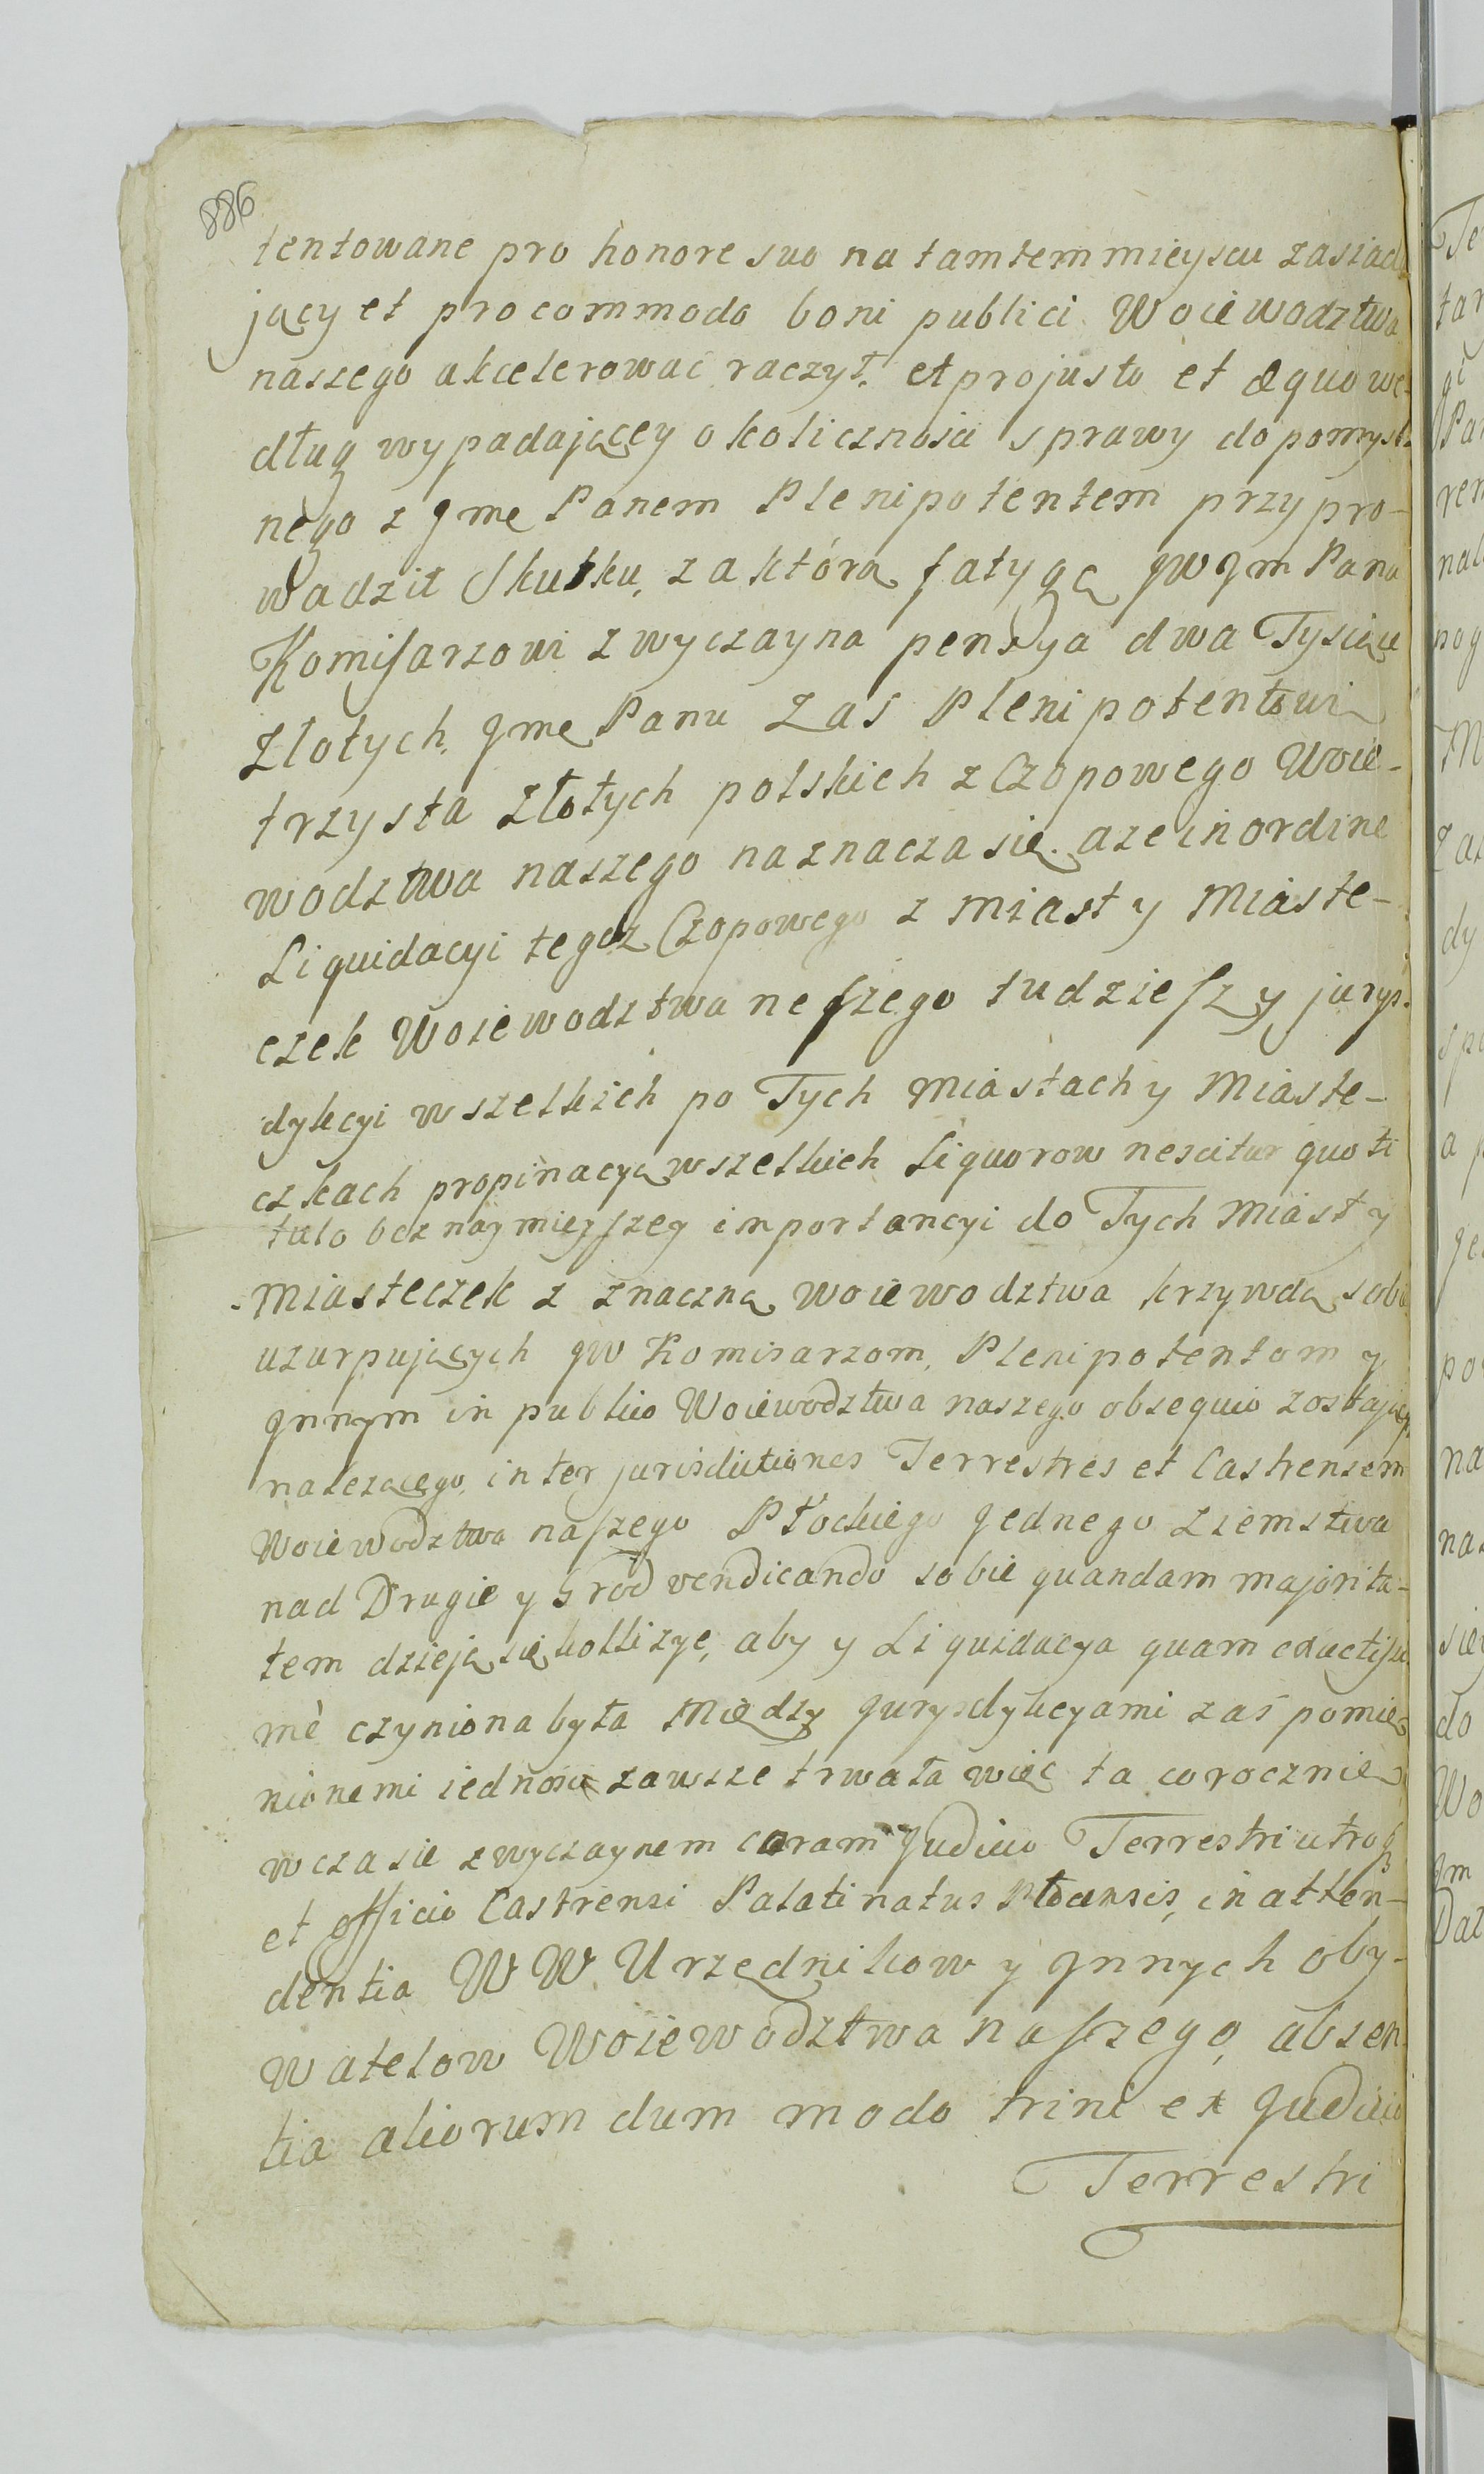 886
tentowane pro honore suo na tamtem mieyscu zasiada
jący et pro commodo boni publici Woiewodztwa
naszego akcelerować raczył. et pro justo et æquo we-
dług wypadającey okolicznosci sprawy do pomysl-
nego z Jme Panem Plenipotentem przypro-
wadził Skutku, za którą fatygę JW Jm Panu
Komisarzowi zwyczayna pensya dwa Tysiące
Złotych, Jme Panu Zas Plenipotentowi
trzysta złotych polskich z Czopowego Woie-
wodztwa naszego naznacza się. aze in ordine
Liquidacyi tegoz Czopowego z miast y Miaste-
czek Woiewodztwa naszego tudziesz y jurys-
dykcyi wszelkich po Tych Miastach y Miaste-
czkach propinacyą wszelkich liquorow nescitur quo ti
tulo bez naymieyszey inportancyi do Tych Miast y
Miasteczek z znaczną woiewodztwa krzywdą sobie
uzurpujących JW Komisarzom, Plenipotentom y
Jnnym in publico Woiewodztwa naszego obsequio zostający
nalezącego, inter jurisdictiones Terrestres et Castrensem
Woiewodztwa naszego Płockiego Jednego Ziemstwa
nad Drugie y Grod vendicando sobie quandam majorita-
tem dzieją się kollizye, aby y Liquidacya quam exactissi
mè czyniona była Między Jurysdykcyami zaś pomie
nionemi iednosc zawsze trwała więc ta corocznie
w czasie zwyczaynem coram Judicio Terrestri utroq
et officio Castrensi Palatinatus Plocensis, in atten-
dentia WW. Urzędnikow y Jnnych oby-
watelow Woiewodztwa naszego, absen
tia aliorum dum modo trini ex Judicio
Terrestri